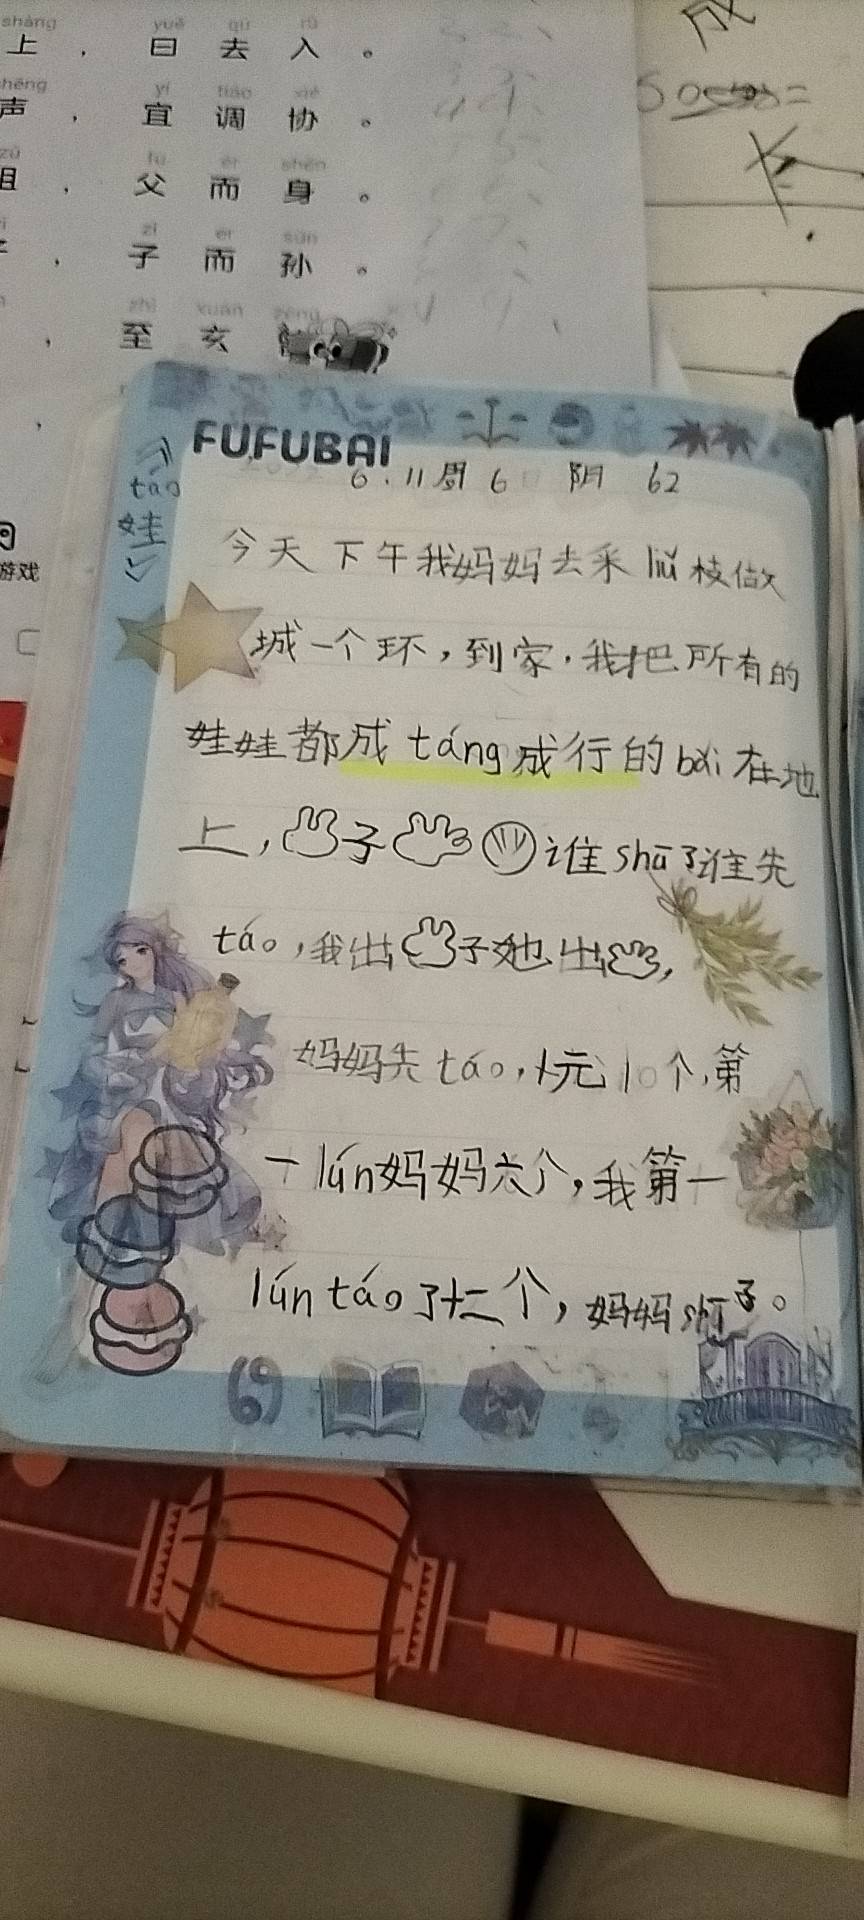 shàng yuē qù rù
上 ， 曰 去 入 。
yí tiáo xié
声 ， 宜 调 协 。
fù ér shēn
， 父 而 身 。
zǐ ér sūn
， 子 而 孙 。
zhì xuán zēng
， 至 玄
游戏
FUFUBAI
6.11周6 阴 62
《
táo
娃
》
今天下午我妈妈去采liǔ枝做
城一个环，到家，我把所有的
娃娃都成táng成行的bǎi在地
上，子谁shū了谁先
táo，我出子她出，
妈妈先táo，玩10个，第
一lún妈妈六个，我第一
lún táo了十二个，妈妈